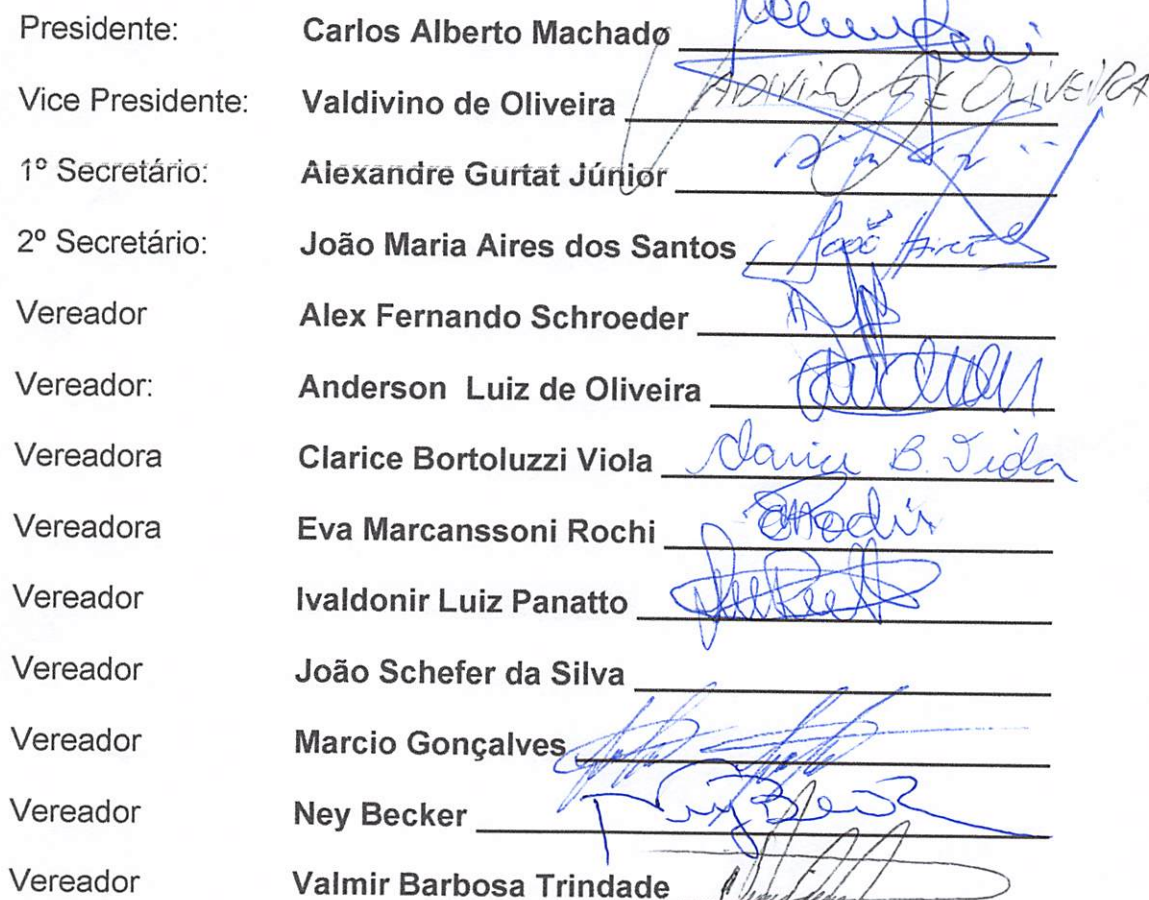 Presidente: Carlos Alberto Machado
Vice Presidente: Valdivino de Oliveira ADIVINO DE OLIVEIRA
1º Secretário: Alexandre Gurtat Júnior
2º Secretário: João Maria Aires dos Santos João Aires
Vereador Alex Fernando Schroeder
Vereador: Anderson Luiz de Oliveira
Vereadora Clarice Bortoluzzi Viola Clarice B. Viola
Vereadora Eva Marcanssoni Rochi
Vereador Ivaldonir Luiz Panatto
Vereador João Schefer da Silva
Vereador Marcio Gonçalves
Vereador Ney Becker
Vereador Valmir Barbosa Trindade